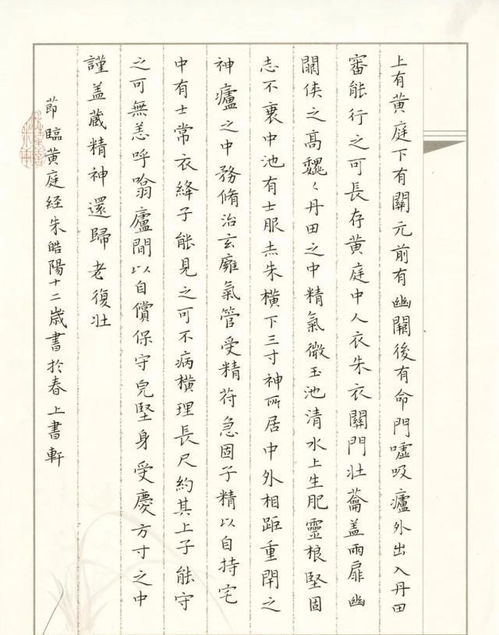 上有黄庭下有關元前有幽闕後有命門噓吸廬外出入丹田
審能行之可長存黄庭中人衣朱衣關門壯蘥盖兩扉幽
闕俠之高魏〻丹田之中精氣微玉池清水上生肥靈根堅固
志不衰中池有士服赤朱橫下三寸神所居中外相距重閉之
神廬之中務脩治玄廱氣管受精符急固子精以自持宅
中有士常衣絳子能見之可不病橫理長尺約其上子能守
之可無恙呼噏廬間以自償保守完堅身受慶方寸之中
謹盖藏精神還歸老復壯
節臨黄庭经朱皓陽十二歲書於春上書軒